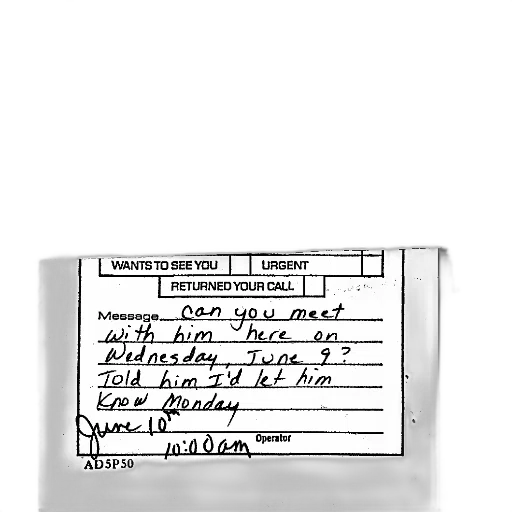 WANTS TO SEE YOU URGENT
RETURNED YOUR CALL
Message can you meet
with him here on
Wednesday, June 9?
Told him I'd let him
know Monday
June 10th
10:00am Operator
AD5P50